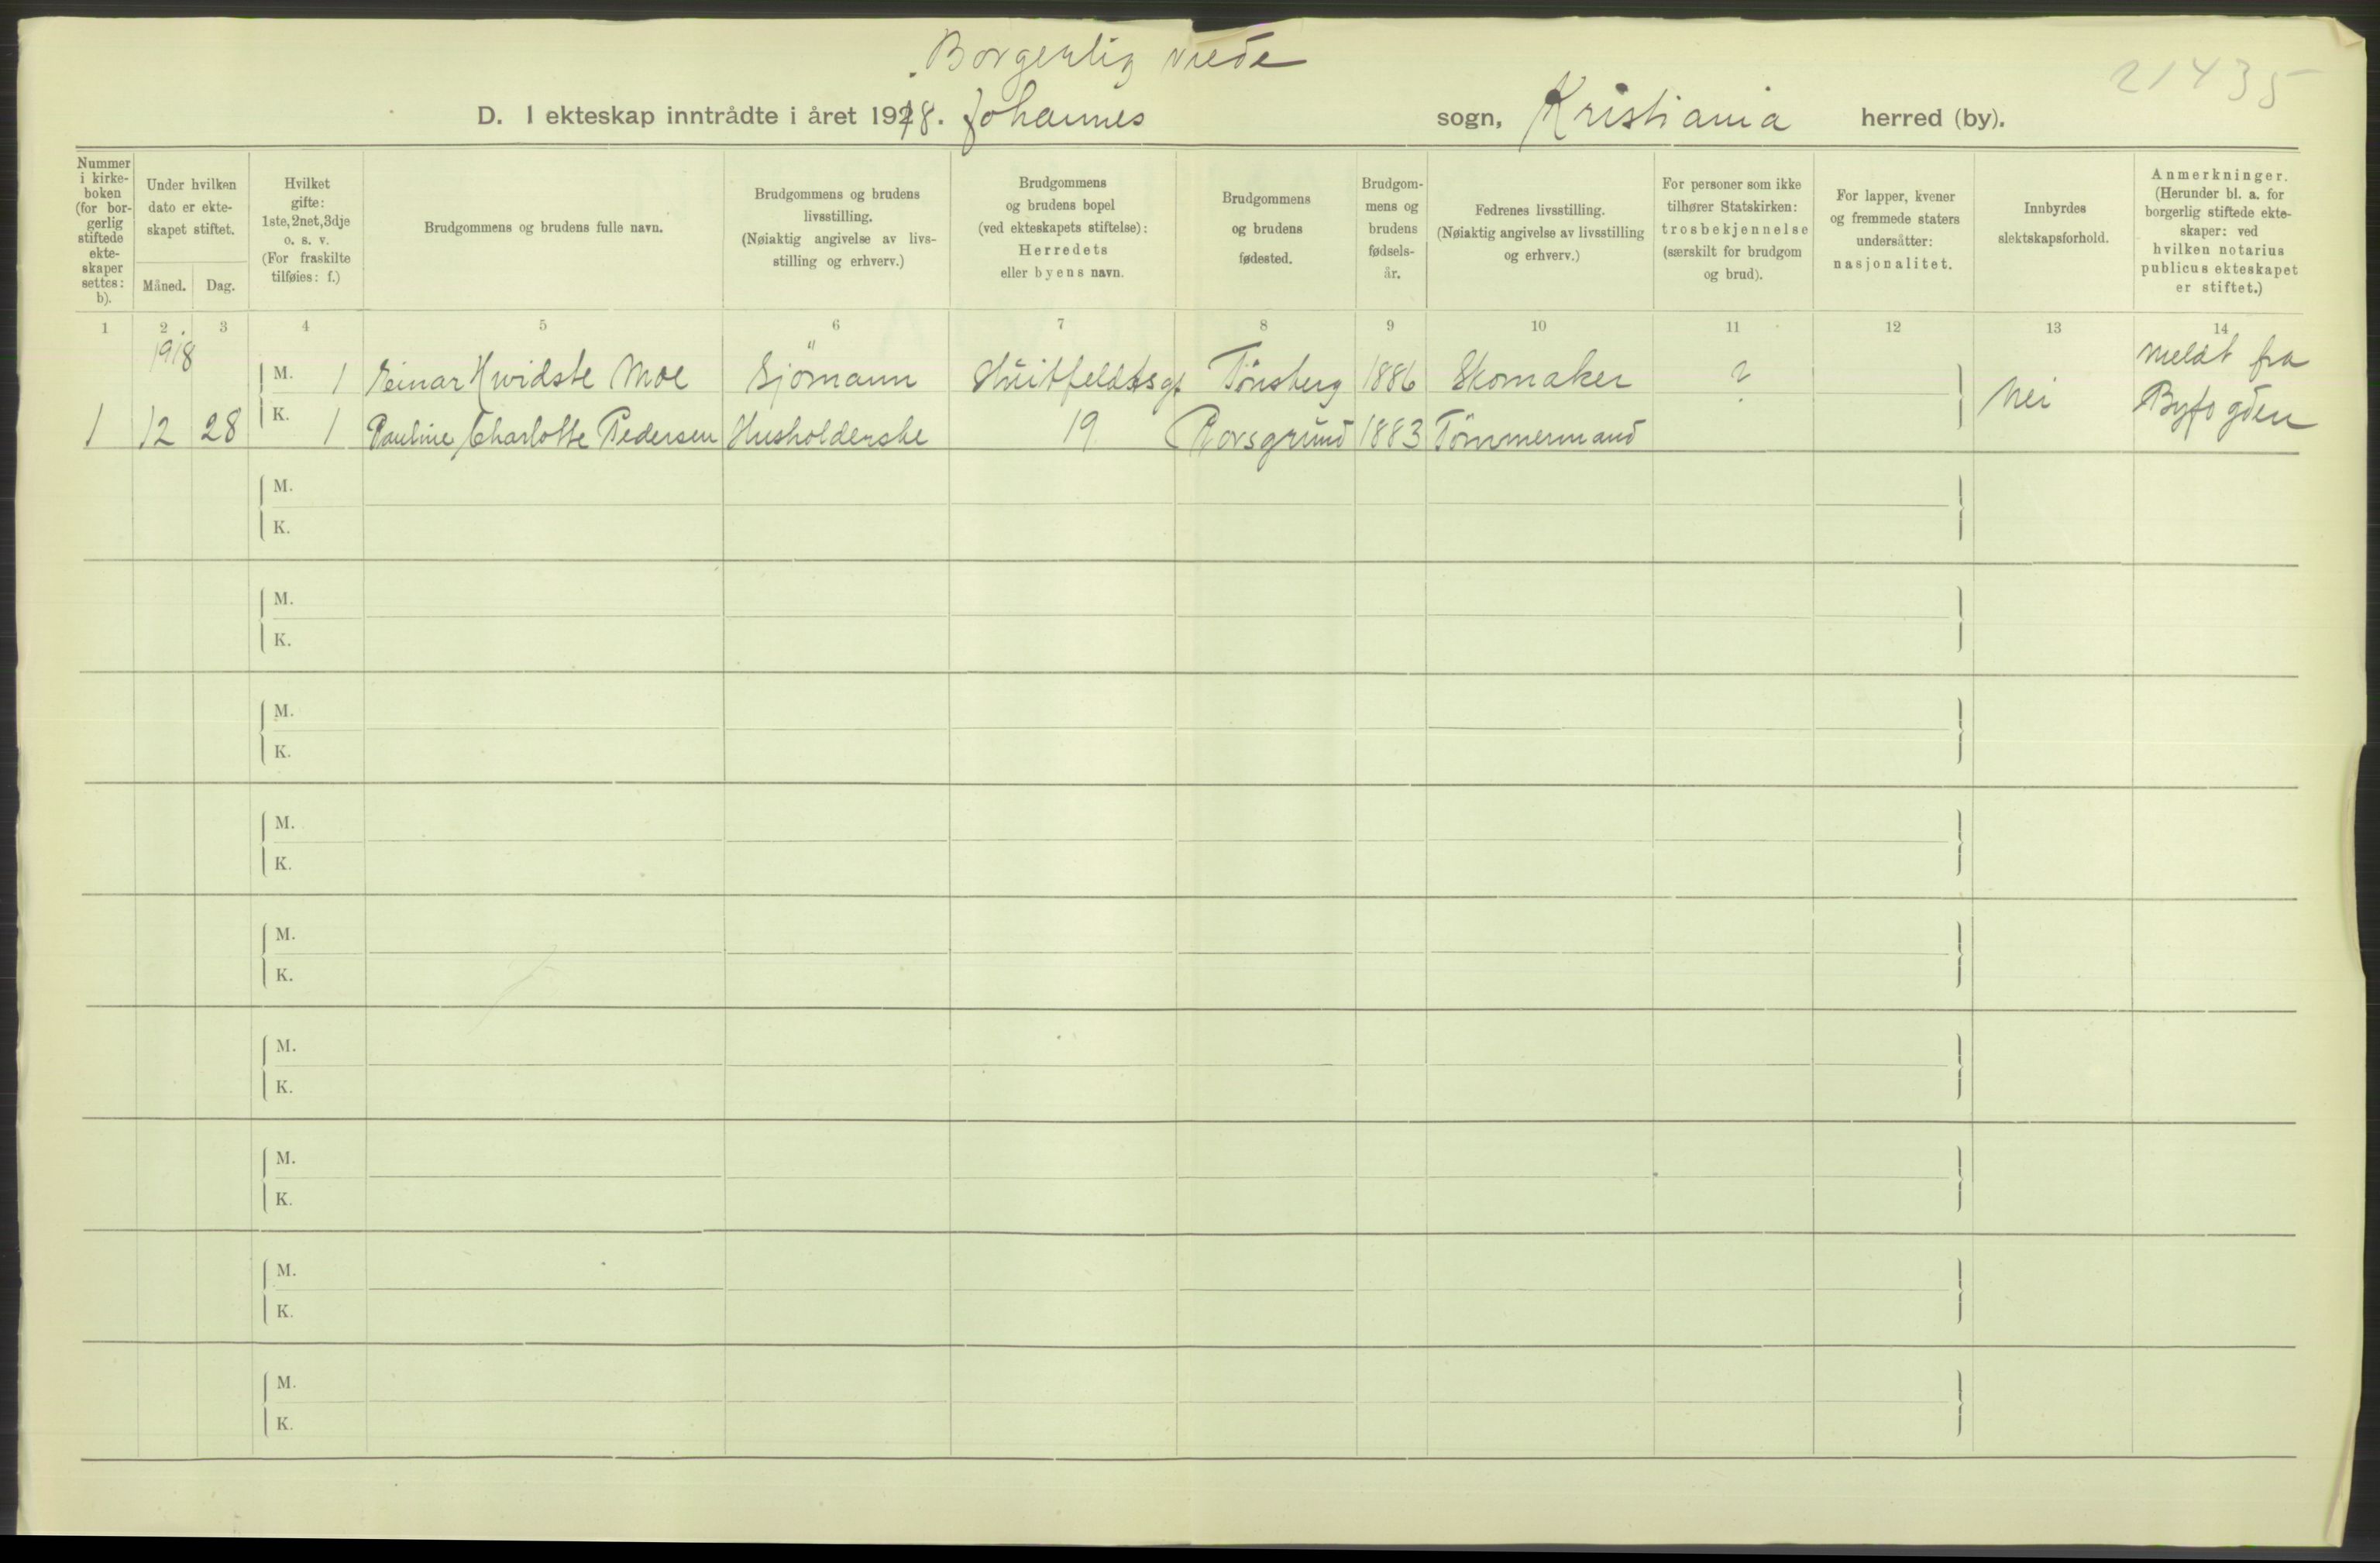 Borgerlig viede
21435
D. I ekteskap inntrådte i året 1918. Johannes sogn, Kristiania herred (by).
Nummer i kirke-boken (for bor-gerlig stiftede ekte-skaper settes: b).
Under hvilken dato er ekte-skapet stiftet.
Måned. Dag.
Hvilket gifte: 1ste, 2net, 3dje o. s. v. (For fraskilte tilføies: f.)
Brudgommens og brudens fulle navn.
Brudgommens og brudens livsstilling. (Nøiaktig angivelse av livs-stilling og erhverv.)
Brudgommens og brudens bopel (ved ekteskapets stiftelse): Herredets eller byens navn.
Brudgommens og brudens fødested.
Brudgom-mens og brudens fødsels-år.
Fedrenes livsstilling. (Nøiaktig angivelse av livsstilling og erhverv.)
For personer som ikke tilhører Statskirken: trosbekjennelse (særskilt for brudgom og brud).
For lapper, kvener og fremmede staters undersåtter: nasjonalitet.
Innbyrdes slektskapsforhold.
Anmerkninger. (Herunder bl. a. for borgerlig stiftede ekte-skaper: ved hvilken notarius publicus ekteskapet er stiftet.)
1 2 3 4 5 6 7 8 9 10 11 12 13 14
1918
M. 1 Einar Hvidste Moe Sjömann Huitfeldtsgt Tønsberg 1886 Skomaker ? Nei meldt fra
1 12 28 K. 1 Pauline Charlotte Pedersen Husholderske 19 Porsgrund 1883 Tömmermand Byfogden
M.
K.
M.
K.
M.
K.
M.
K.
M.
K.
M.
K.
M.
K.
M.
K.
M.
K.